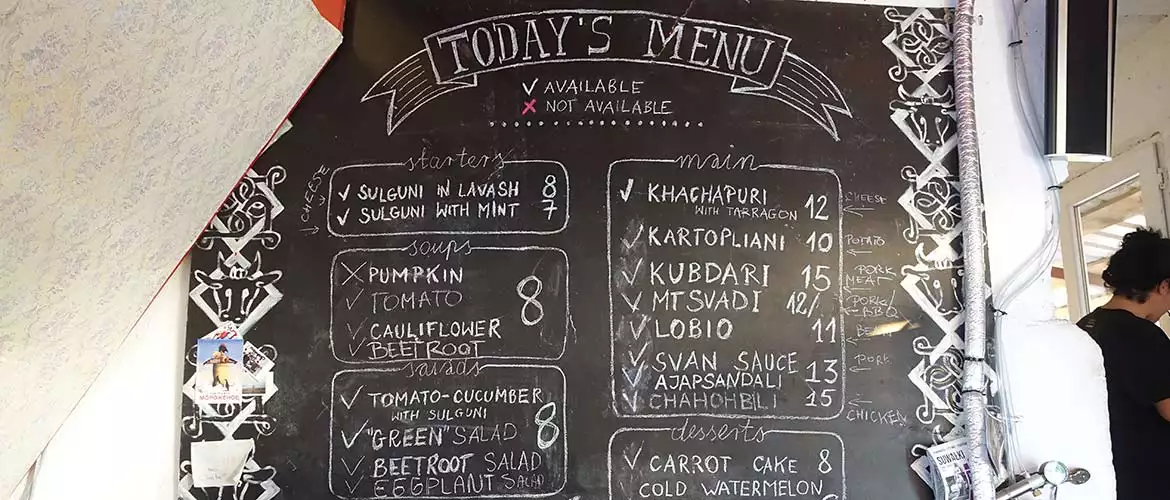 TODAY'S MENU
✓ AVAILABLE
✗ NOT AVAILABLE
starters
CHEESE
✓ SULGUNI IN LAVASH 8
✓ SULGUNI WITH MINT 7
soups
✗ PUMPKIN
✓ TOMATO 8
✓ CAULIFLOWER
✓ BEETROOT
salads
✓ TOMATO-CUCUMBER
WITH SULGUNI 8
✓ "GREEN" SALAD
✓ BEETROOT SALAD
✓ EGGPLANT SALAD
main
✓ KHACHAPURI
WITH TARRAGON 12 CHEESE
✓ KARTOPLIANI 10 POTATO
✓ KUBDARI 15 PORK MEAT
✓ MTSVADI 12/ PORK/BBQ
✓ LOBIO 11
✓ SVAN SAUCE 13 PORK
✓ AJAPSANDALI
✓ CHAHOHBILI 15 CHICKEN
desserts
✓ CARROT CAKE 8
COLD WATERMELON
SUWAŁKI